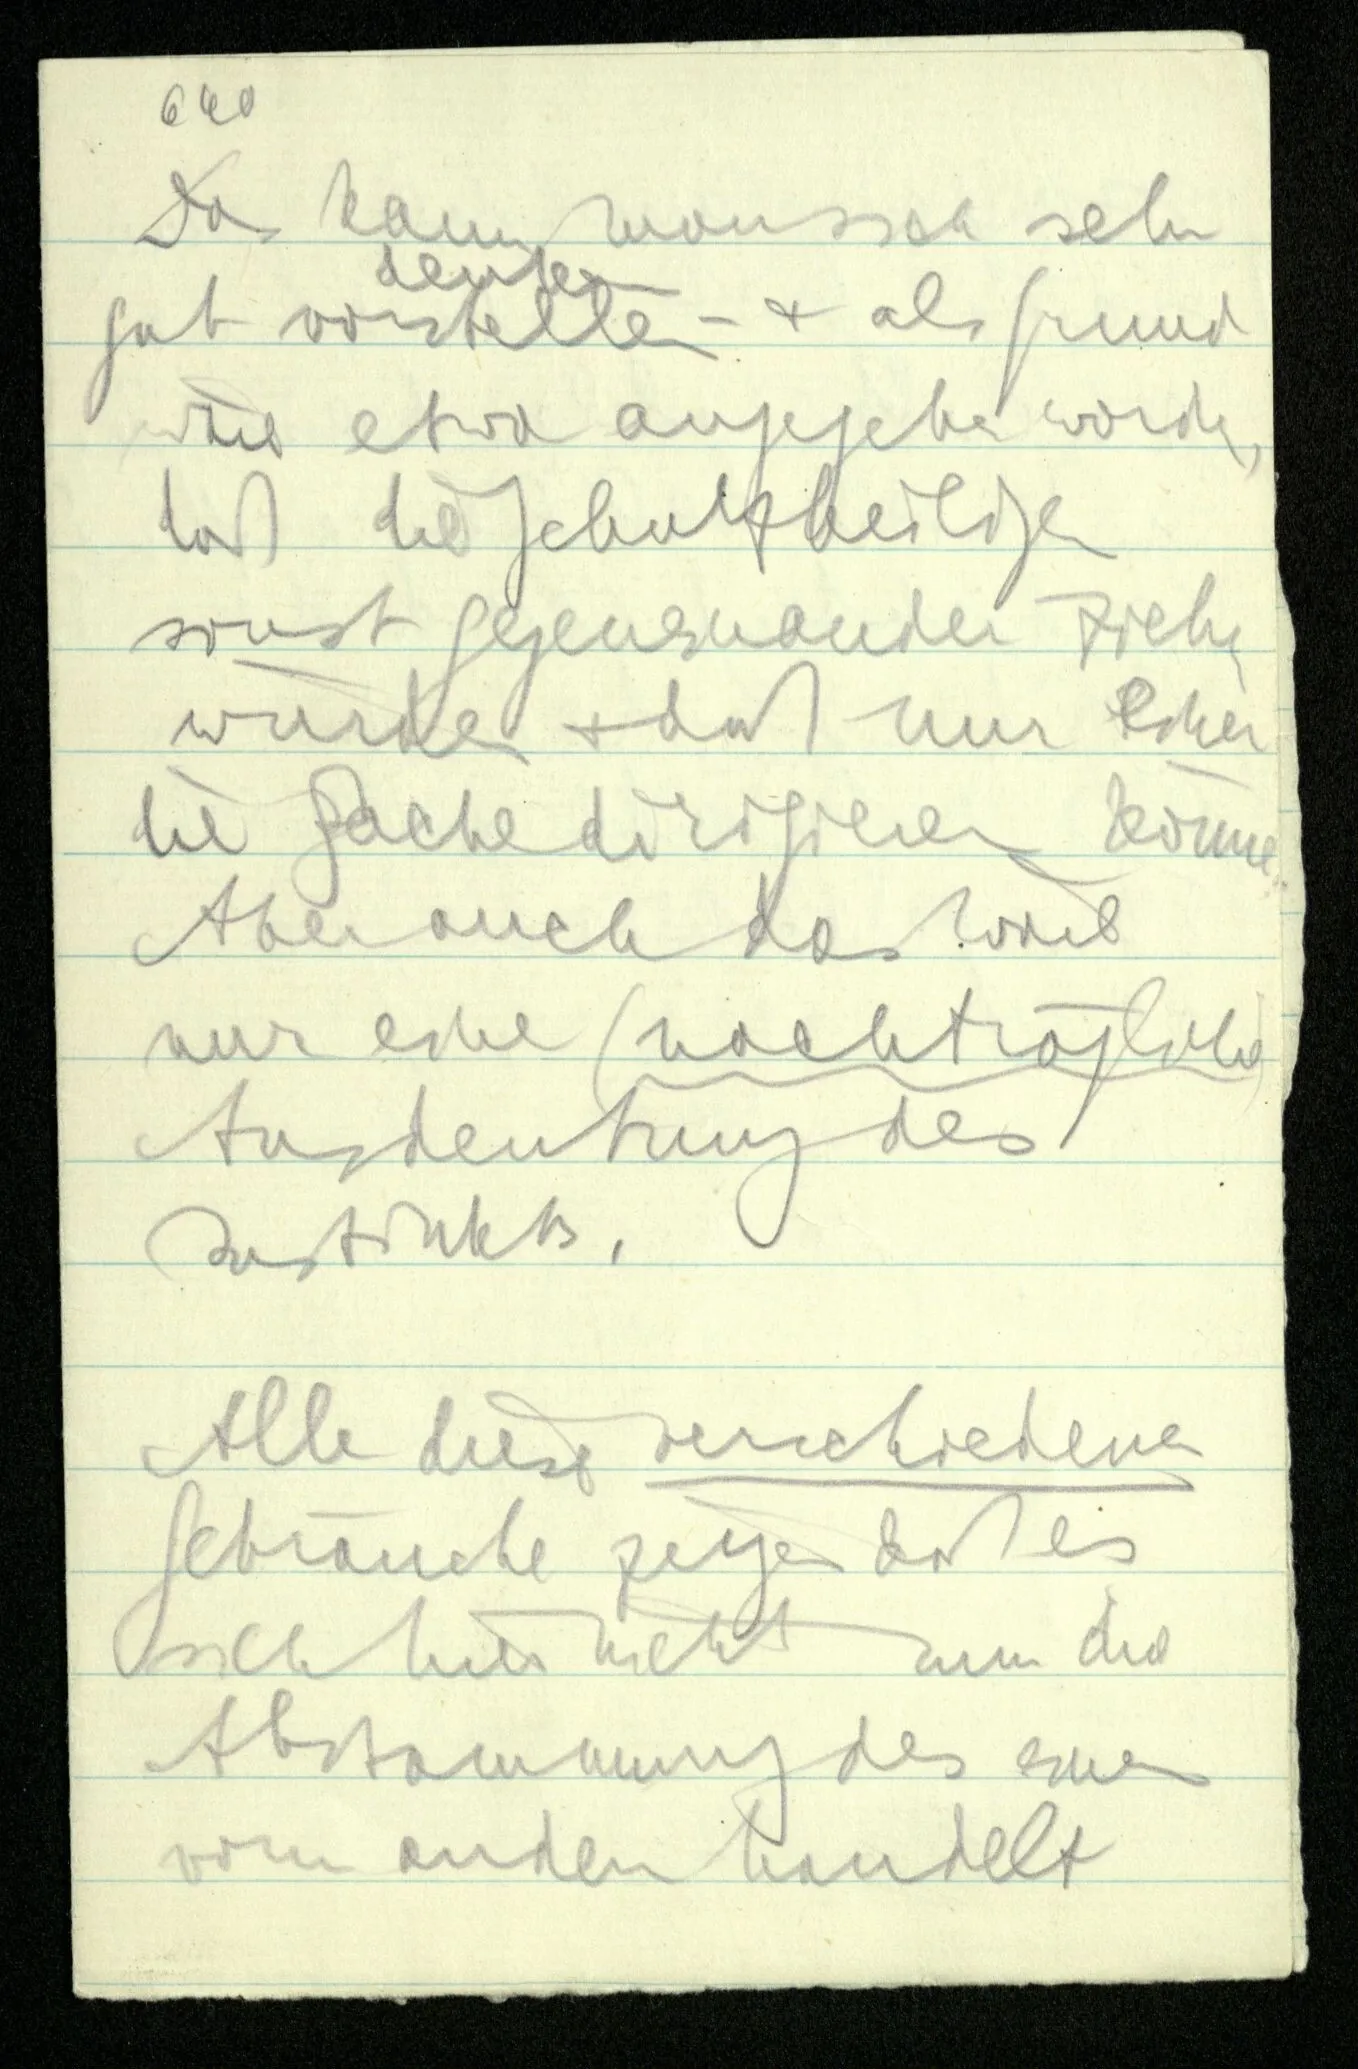 640
Das kann man sich sehr
denken
gut vorstellen – + als Grund
wäre etwa angegeben worden,
daß die Schutzheiligen
sonst gegeneinander ziehen
würden + daß nur einer
die Sache dirigieren könne.
Aber auch das wäre
nur eine (nachträgliche)
Ausdeutung des
Instinkts.
Alle diese verschiedenen
Gebräuche zeigen daß es
sich hier nicht um die
Abstammung des einen
vom andern handelt